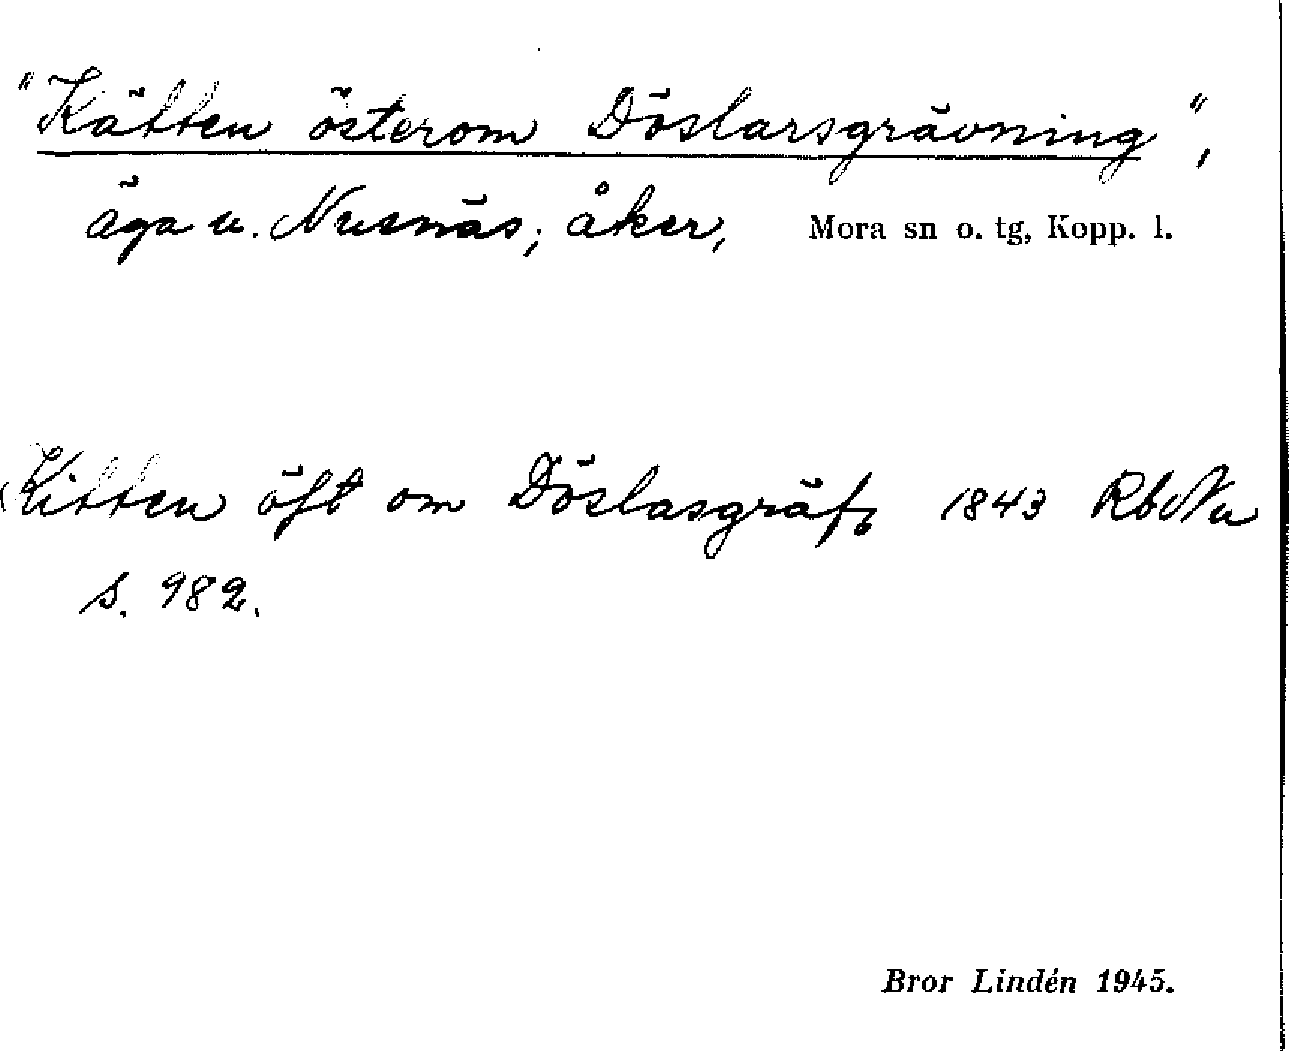 "Kätten österom Döslarsgrävning",
äga u. Nusnäs; åker, Mora sn o. tg, Kopp. l.
Kitten öft om Döslasgräfn 1843 RbNu
s. 982.
Bror Lindén 1945.